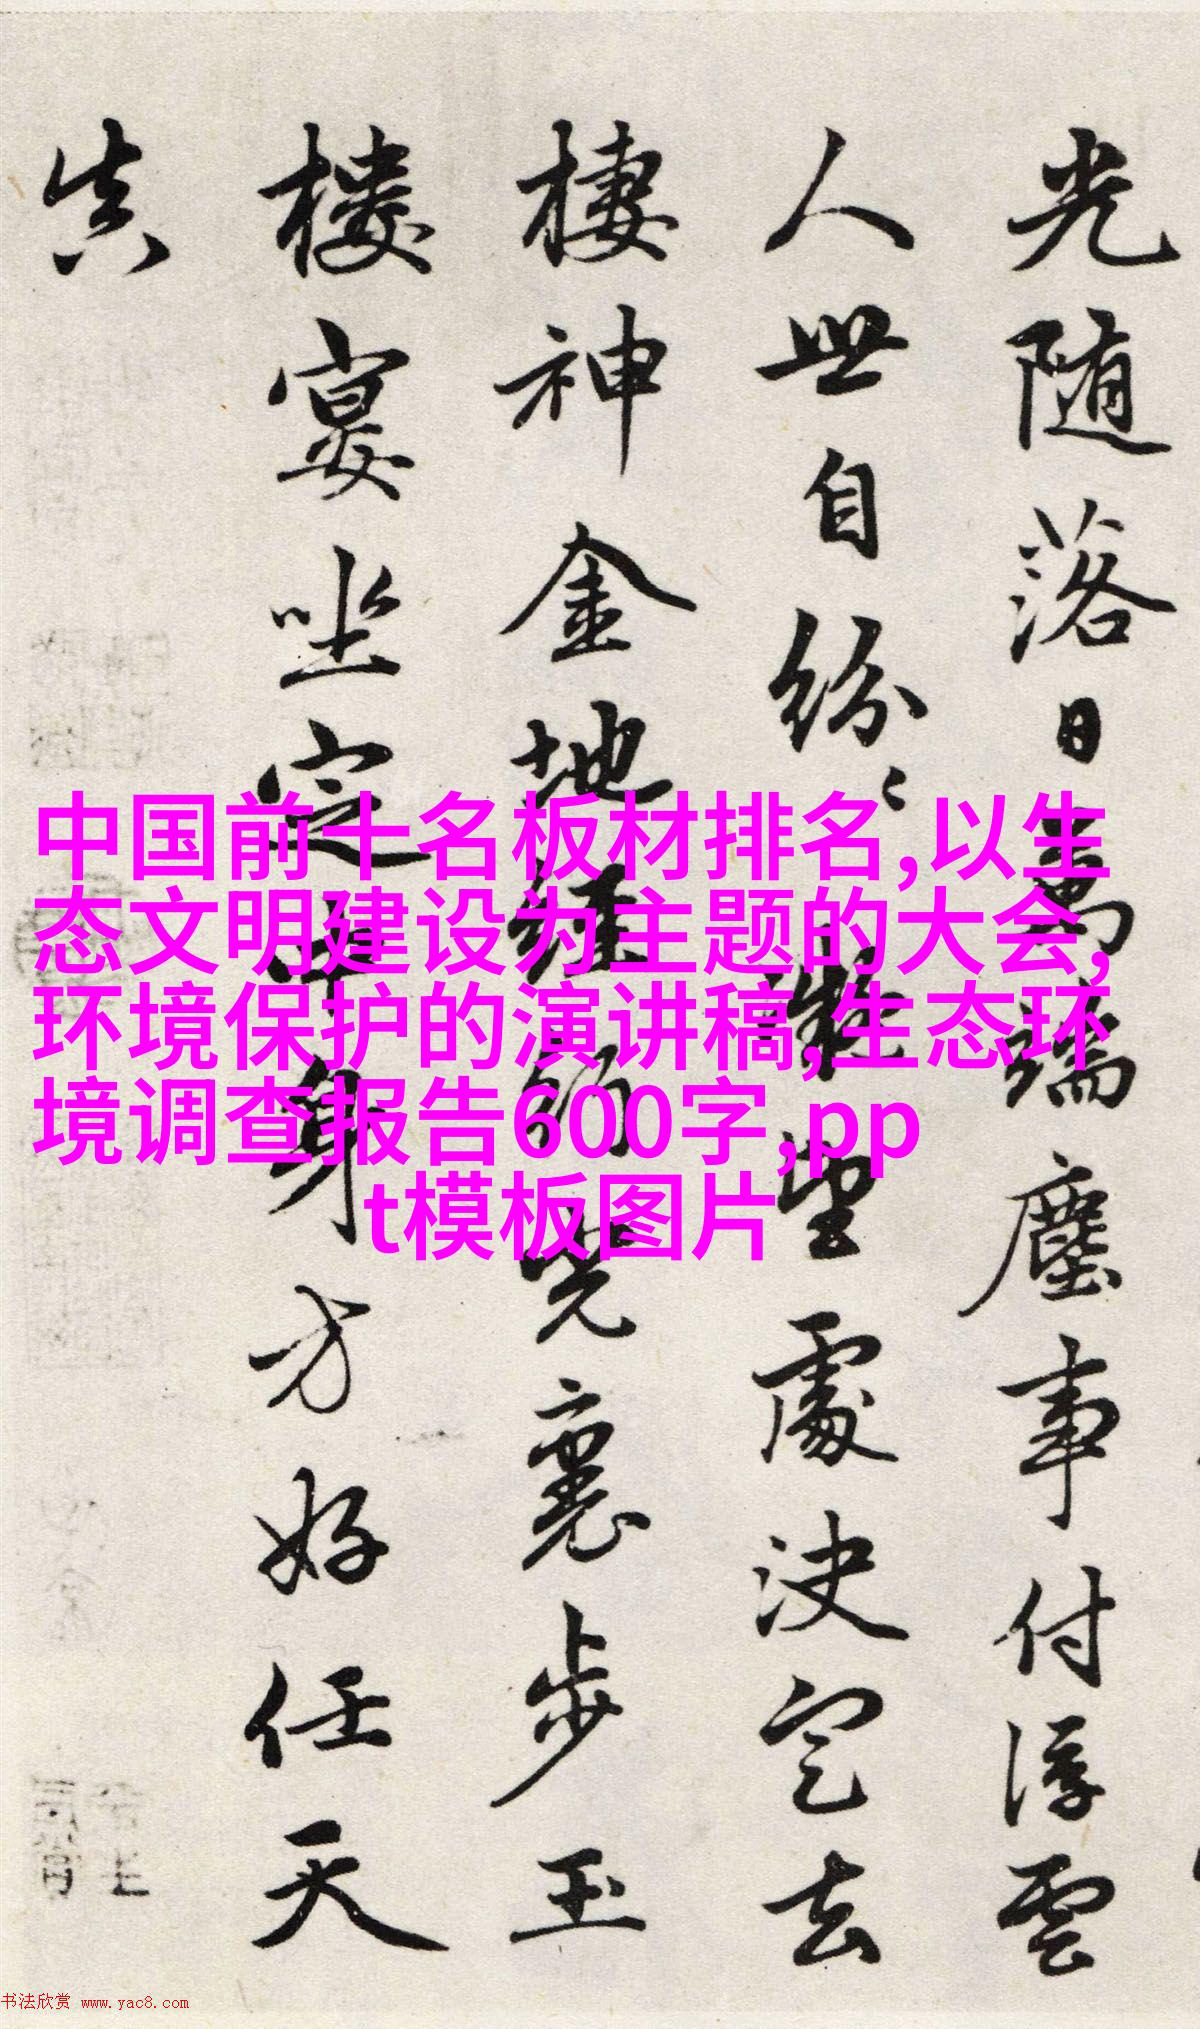 光随落日萬端塵事付浮雲
人世自紛〻凝望處决定去
棲神金地經行光裏步玉
樓宴坐定中身方好任天
真
中国前十名板材排名,以生
态文明建设为主题的大会,
环境保护的演讲稿,生态环
境调查报告600字,pp
t模板图片
书法欣赏 www.yac8.com